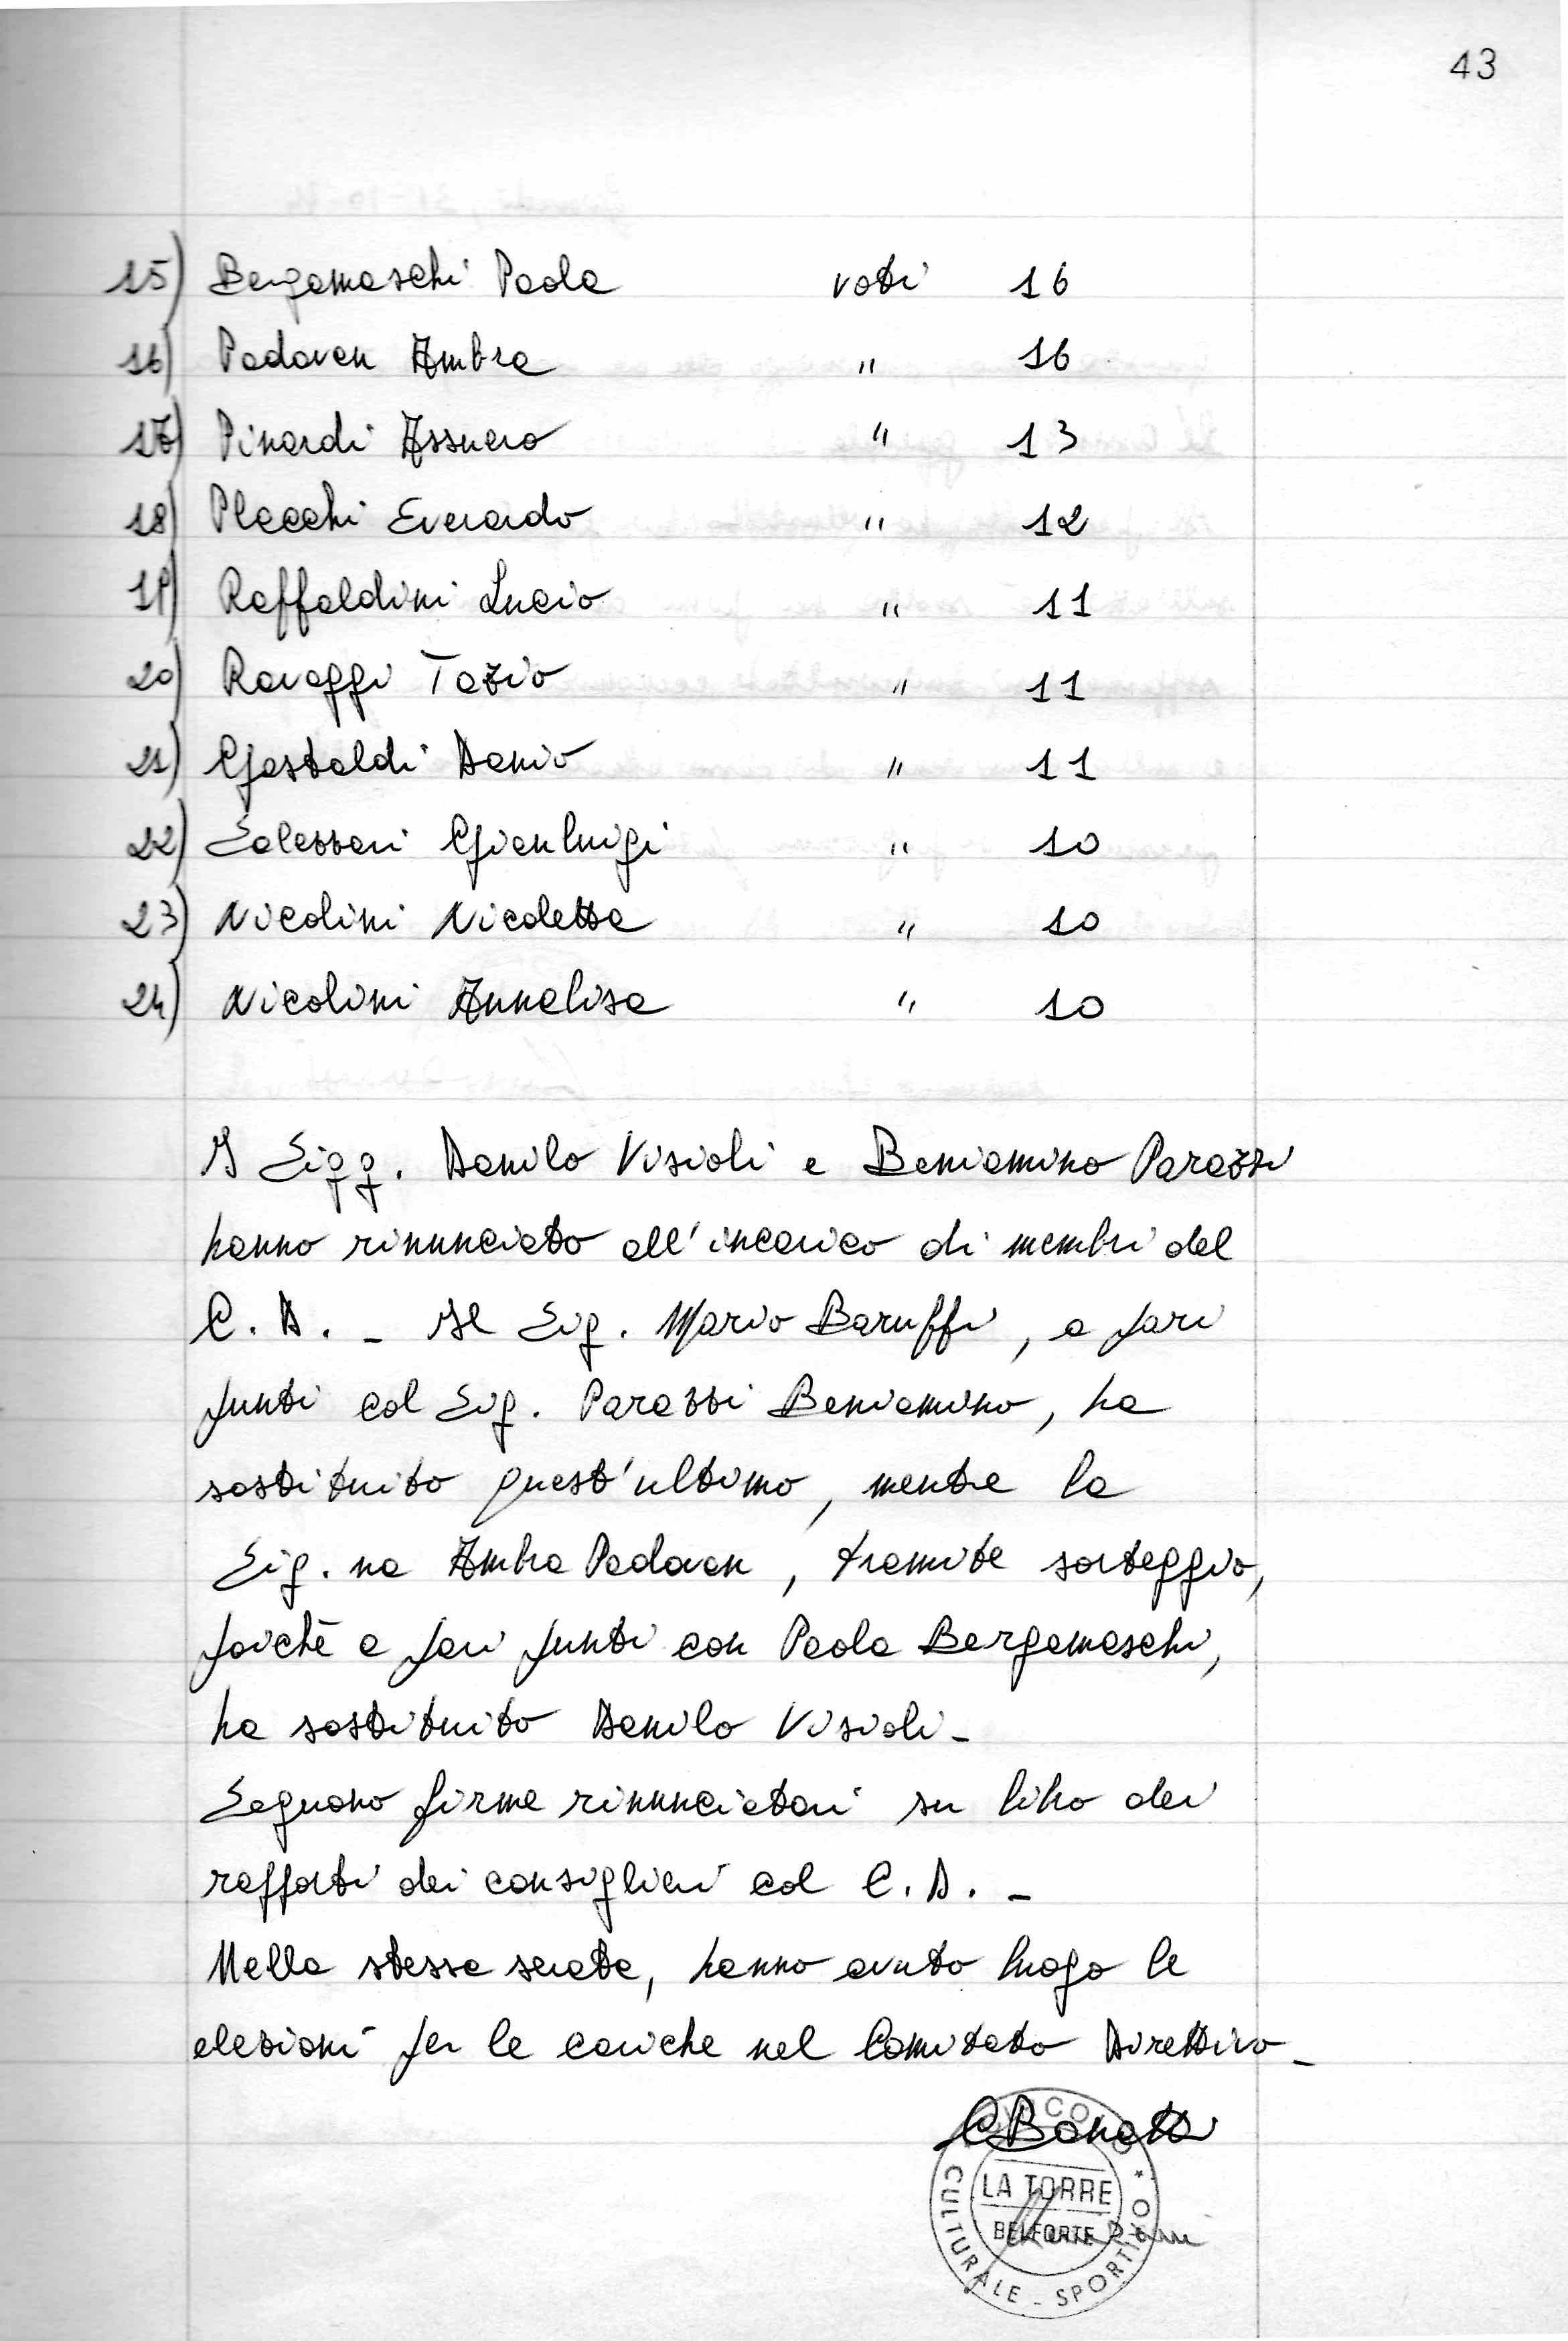 43
15) Bergamaschi Paola voti 16
16) Padovan Ambra " 16
17) Pinardi Assuero " 13
18) Placchi Everardo " 12
19) Raffaldini Lucio " 11
20) Ravaggi Tazio " 11
21) Gastaldi Danio " 11
22) Salessari Gianluigi " 10
23) Nicolini Nicoletta " 10
24) Nicolini Annalisa " 10
I Sigg. Danilo Visioli e Beniamino Parazzi
hanno rinunciato all'incarico di membri del
C. D. - Il Sig. Mario Baruffi, a pari
punti col Sig. Parazzi Beniamino, ha
sostituito quest'ultimo, mentre la
Sig.na Ambra Padovan, tramite sorteggio,
poichè a pari punti con Paola Bergamaschi,
ha sostituito Danilo Visioli-
Seguono firme rinunciatari su libro dei
rapporti dei consiglieri col C. D. -
Nella stessa serata, hanno avuto luogo le
elezioni per le cariche nel Comitato Direttivo-
CBonatti
LA TORRE
BELFORTE
CULTURALE - SPORTIVO *